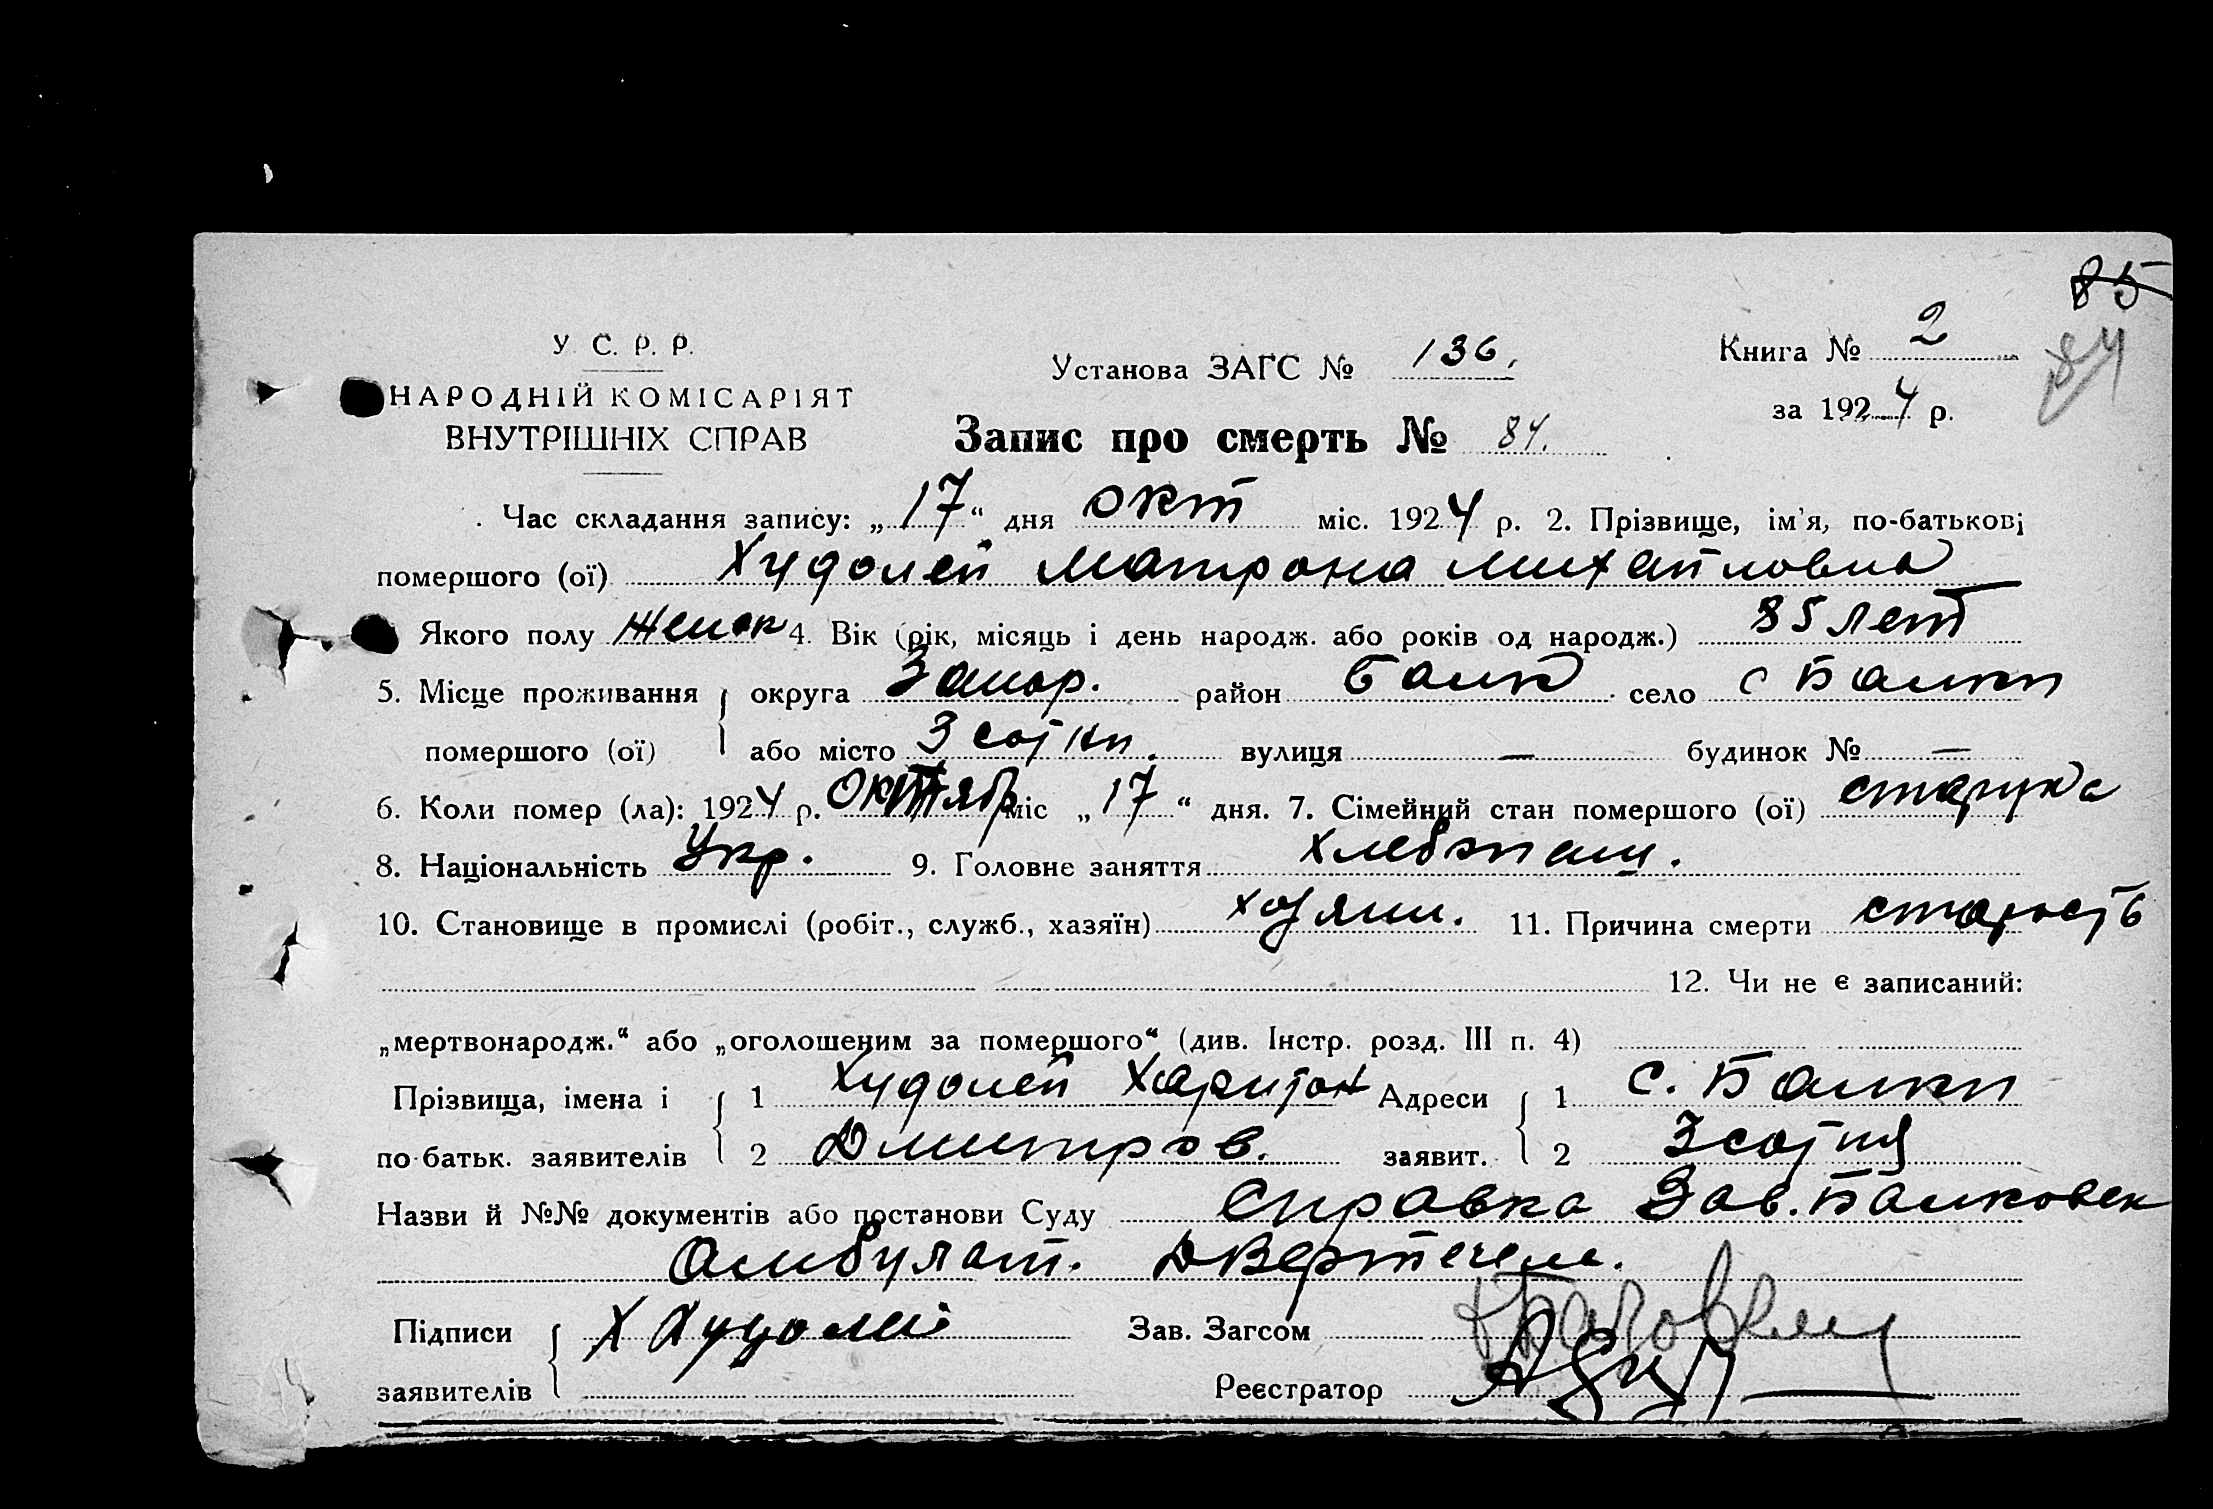 85
У. С. Р. Р.
Установа ЗАГС № 136.
Книга № 2
84
НАРОДНІЙ КОМІСАРІЯТ
за 1924 р.
ВНУТРІШНІХ СПРАВ
Запис про смерть № 84.
. Час складання запису: „17“ дня окт міс. 1924 р. 2. Прізвище, ім'я, по-батькові
помершого (ої) Худолей Матрона Михайловна
Якого полу женск 4. Вік (рік, місяць і день народж. або років од народж.) 85 лет
5. Місце проживання округа Запор. район Балк село с Балки
помершого (ої) або місто 3 сотни. вулиця — будинок № —
6. Коли помер (ла): 1924 р. октябр міс „17“ дня. 7. Сімейний стан помершого (ої) старуха
8. Національність Укр. 9. Головне заняття хлебопаш.
10. Становище в промислі (робіт., служб., хазяїн) хозяин. 11. Причина смерти старость
12. Чи не є записаний:
„мертвонародж.“ або „оголошеним за помершого“ (див. Інстр. розд. III п. 4)
Прізвища, імена і 1 Худолей Харитон Адреси 1 с. Балки
по-батьк. заявителів 2 Дмитров. заявит. 2 3 сотня
Назви й №№ документів або постанови Суду Справка Зав. Балковск
Амбулат.
Підписи Х Худолей Зав. Загсом
заявителів Реєстратор